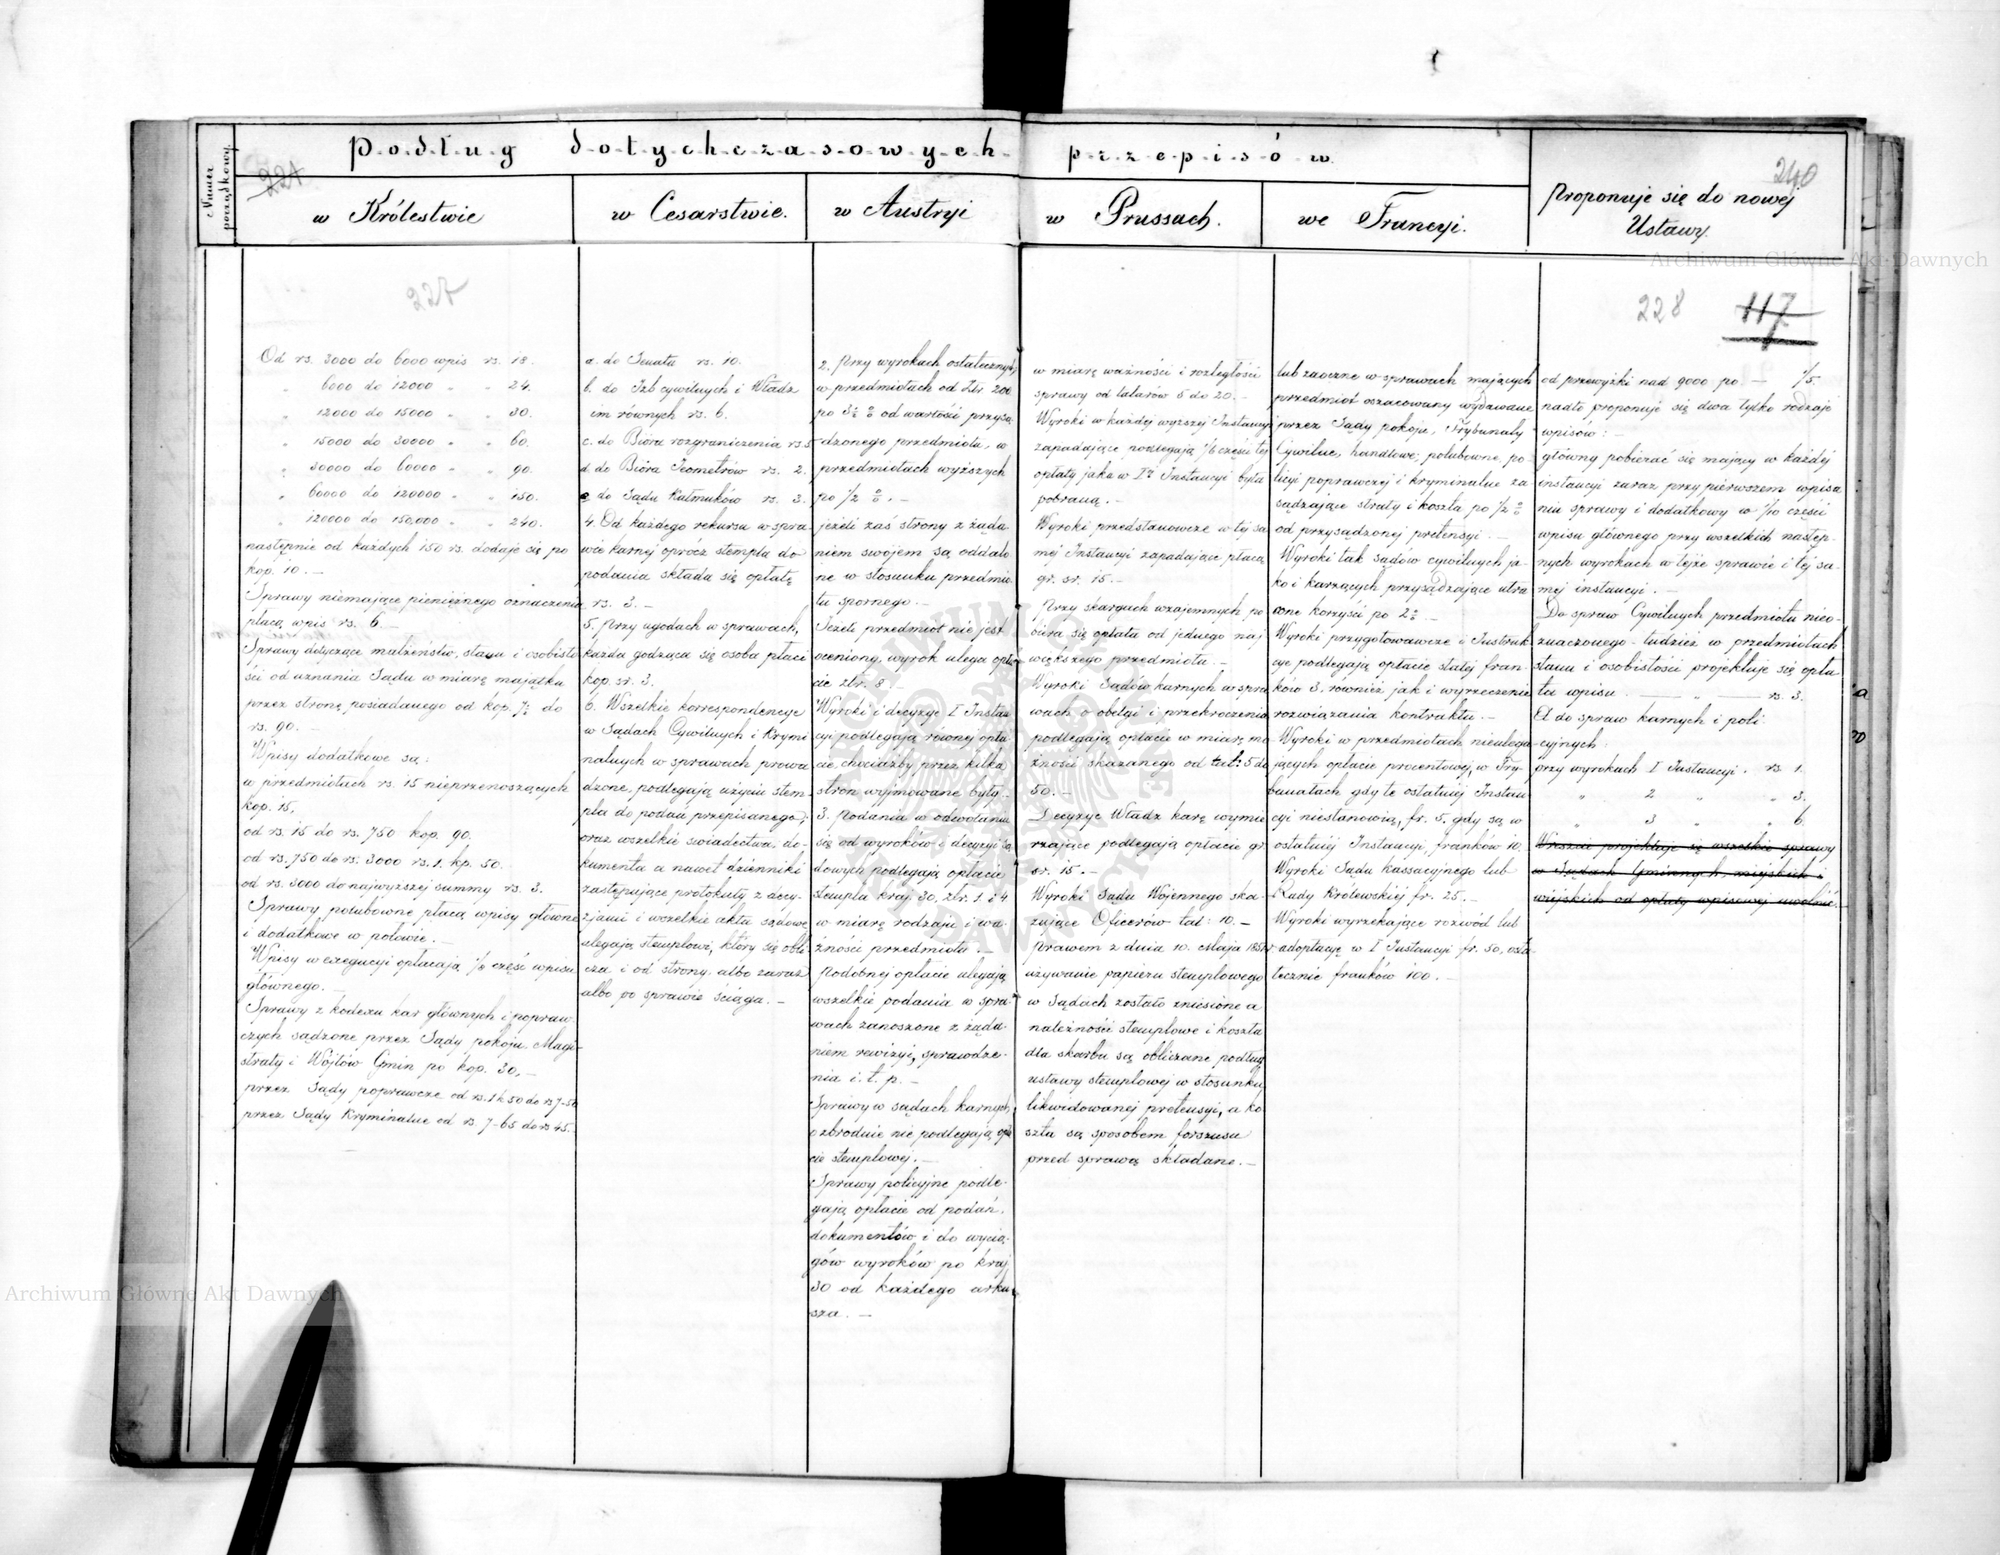 Numer porządkowy
Podług dotychczasowych przepisów
224
240
w Królestwie
w Cesarstwie.
w Austryi
w Prussach.
we Francyi.
Proponuje się do nowej
Ustawy.
Archiwum Główne Akt Dawnych
227
228
117
Od rs. 3000 do 6000 wpis rs. 18.
„ 6000 do 12000 „ „ 24.
„ 12000 do 15000 „ „ 30.
„ 15000 do 30000 „ „ 60.
„ 30000 do 60000 „ „ 90.
„ 60000 do 120000 „ „ 150.
„ 120000 do 150,000 „ „ 240.
następnie od każdych 150 rs. dodaje się po
kop. 10. —
Sprawy niemające pieniężnego oznaczenia
płacą wpis rs. 6. —
Sprawy dotyczące małżeństw, stanu i osobisto
ści od uznania Sądu w miarę majątku
przez stronę posiadanego od kop. 7½ do
rs. 90. —
Wpisy dodatkowe są:
w przedmiotach rs. 15 nieprzenoszących
kop. 15,
od rs. 15 do rs. 750 kop. 90.
od rs. 750 do rs. 3000 rs. 1. kp. 50.
od rs. 3000 do najwyższej summy rs. 3.
Sprawy polubowne płacą wpisy główne
i dodatkowe w połowie. —
Wpisy w exegucyi opłacają 1/8 część wpisu
głównego. —
Sprawy z kodexu kar głównych i popraw
czych sądzone przez Sądy pokoju Magi-
straty i Wójtów Gmin po kop. 30, —
przez Sądy poprawcze od rs. 1 k 50 do rs 7-50
przez Sądy Kryminalne od rs. 7-65 do rs 45.
a. do Senatu rs. 10.
b. do Izb cywilnych i Władz
im równych rs. 6.
c. do Bióra rozgraniczenia rs. 5
d. do Bióra Jeometrów rs. 2.
e do Sądu Kałmuków rs. 3.
4. Od każdego rekursu w spra
wie karnej oprócz stempla do
podania składa się opłatę
rs. 3. —
5. Przy ugodach w sprawach,
każda godząca się osoba płaci
kop. sr. 3.
6. Wszelkie korrespondencye
w Sądach Cywilnych i Krymi
nalnych w sprawach prowa
dzone, podlegają użyciu stem-
pla do podań przepisanego;
oraz wszelkie swiadectwa, do-
kumenta a nawet dzienniki
zastępujące protokuły z decy-
zjami i wszelkie akta sądowe
ulegają stemplowi, który się obli
cza i od strony albo zaraz
albo po sprawie ściąga. —
2. Przy wyrokach ostatecznych
w przedmiotach od Złr. 200
po 3½ % od wartości przysą
dzonego przedmiotu, w
przedmiotach wyższych
po 1/2 %. —
jeżeli zaś strony z żąda-
niem swojem są oddalo
ne w stosunku przedmio
tu spornego. —
Jeżeli przedmiot nie jest
oceniony, wyrok ulega opła
cie złr. 8. —
Wyroki i decyzye I Instan
cyi podlegają równej opła
cie, chociażby przez kilka
stron wyjmowane były. —
3. Podania w odwołaniu
się od wyroków i decyzyi są
dowych podlegają opłacie
stempla kraj. 30, złr. 1. i 4
w miarę rodzaju i wa-
żności przedmiotu. —
Podobnej opłacie ulegają
wszelkie podania w spra-
wach zanoszone z żąda-
niem rewizyi, sprawdze-
nia i. t. p. —
Sprawy w sądach karnych
o zbrodnie nie podlegają opła
cie stemplowej. —
Sprawy policyjne podle-
gają opłacie od podań,
dokumentów i do wycią-
gów wyroków po kraj
30 od każdego arku-
sza. —
w miarę ważności i rozległości
sprawy od talarów 5 do 20. —
Wyroki w każdej wyższej Instancyi
zapadające podlegają 1/6 częsci tej
opłaty jaka w Iej Instancyi była
pobraną. —
Wyroki przedstanowcze w tej sa
mej Instancyi zapadające płacą
gr. sr. 15. —
Przy skargach wzajemnych po
biera się opłata od jednego naj
większego przedmiotu. —
Wyroki Sądów karnych w spra
wach o obelgi i przekroczenia
podlegają opłacie w miarę mo
żności skazanego od tal: 5 do
50. —
Decyzye Władz karę wymie
rzające podlegają opłacie gr.
sr. 15. —
Wyroki Sądu Wojennego ska-
zujące Oficerów tal: 10. —
Prawem z dnia 10. Maja 1851 r
używanie papieru stemplowego
w Sądach zostało zniesione a
należności stemplowe i koszta
dla skarbu są obliczane podług
ustawy stemplowej w stosunku
likwidowanej pretensyi, a ko
szta są sposobem forszusu
przed sprawą składane. —
lub zaoczne w sprawach mających
przedmiot oszacowany wydawane
przez Sądy pokoju, Trybunały
Cywilne, handlowe, polubowne, po
licyi poprawczej i kryminalne za
sądzające straty i koszta po 1/2 %
od przysądzonej pretensyi. —
Wyroki tak sądów cywilnych ja-
ko i karzących przysądzające utra
cone korzyści po 2 %. —
Wyroki przygotowawcze i Instruk
cye podlegają opłacie stałej fran-
ków 3. również jak i wyrzeczenie
rozwiązania kontraktu. —
Wyroki w przedmiotach nieulega-
jących opłacie procentowej, w Try-
bunałach gdy te ostatniej Instan
cyi niestanowią, fr. 5. gdy są w
ostatniej Instancyi, franków 10.
Wyroki Sądu kassacyjnego lub
Rady Królewskiej fr. 25. —
Wyroki wyrzekające rozwód lub
adoptacyę w I Instancyi fr. 50, osta-
tecznie franków 100. —
od przewyżki nad 9000 po. — 1/5.
nadto proponuje się dwa tylko rodzaje
wpisów: —
główny pobierać się mający w każdej
instancyi zaraz przy pierwszem wpisa
niu sprawy i dodatkowy w 1/10 części
wpisu głównego przy wszelkich następ-
nych wyrokach w tejże sprawie i tej sa-
mej instancyi. —
Do spraw Cywilnych przedmiotu nieo-
znaczonego - tudzież w przedmiotach
stanu i osobistości projektuje się opła
ta wpisu. — „ — rs. 3.
A do spraw karnych i poli-
cyjnych:
przy wyrokach I Instancyi. rs 1.
„ 2 „ „ 3.
„ 3 „ „ 6.
Wreszcie projektuje się wszelkie sprawy
w Sądach Gminnych, miejskich i
wiejskich od opłaty wpisowej uwolnić.
Archiwum Główne Akt Dawnych